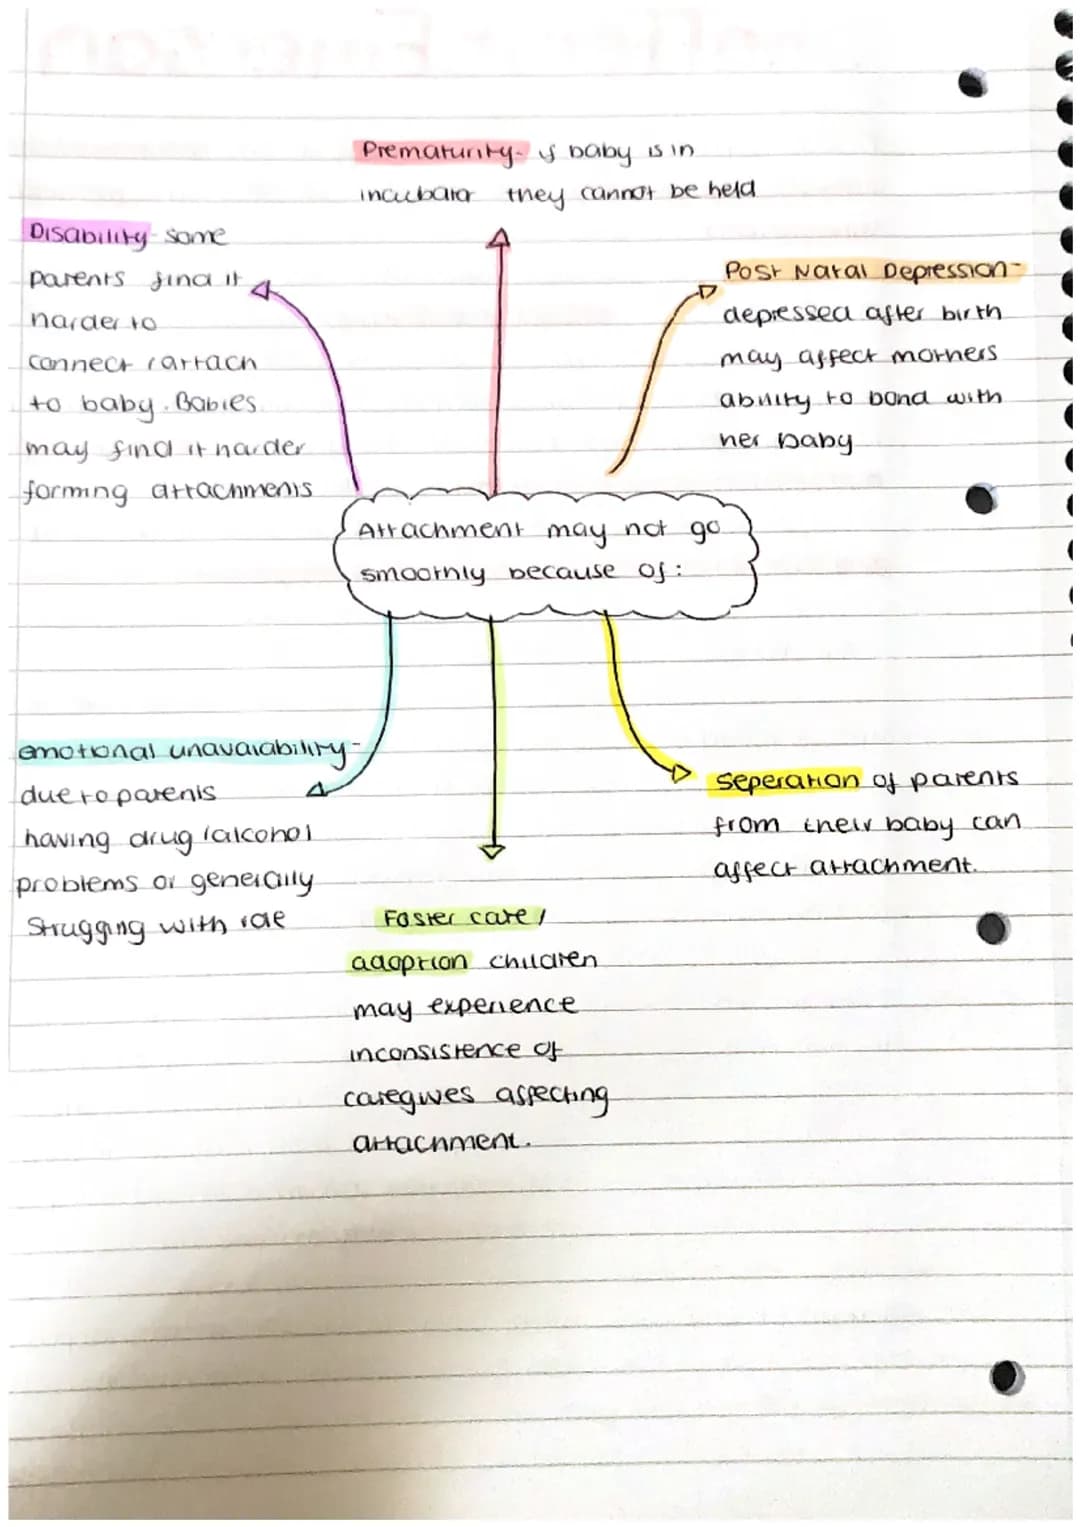 Prematurity- if baby is in
incubator they cannot be held
Disability- some
parents find it
harder to
connect / attach
to baby. Babies
may find it harder
forming attachments
Post Natal Depression-
depressed after birth
may affect mothers
ability to bond with
her baby
Attachment may not go
smoothly because of:
emotional unavaiability-
due to parents
having drug / alcohol
problems or generally
Strugging with role
Seperation of parents
from their baby can
affect attachment.
Foster care /
adoption children
may experience
inconsistence of
caregives affecting
attachment.